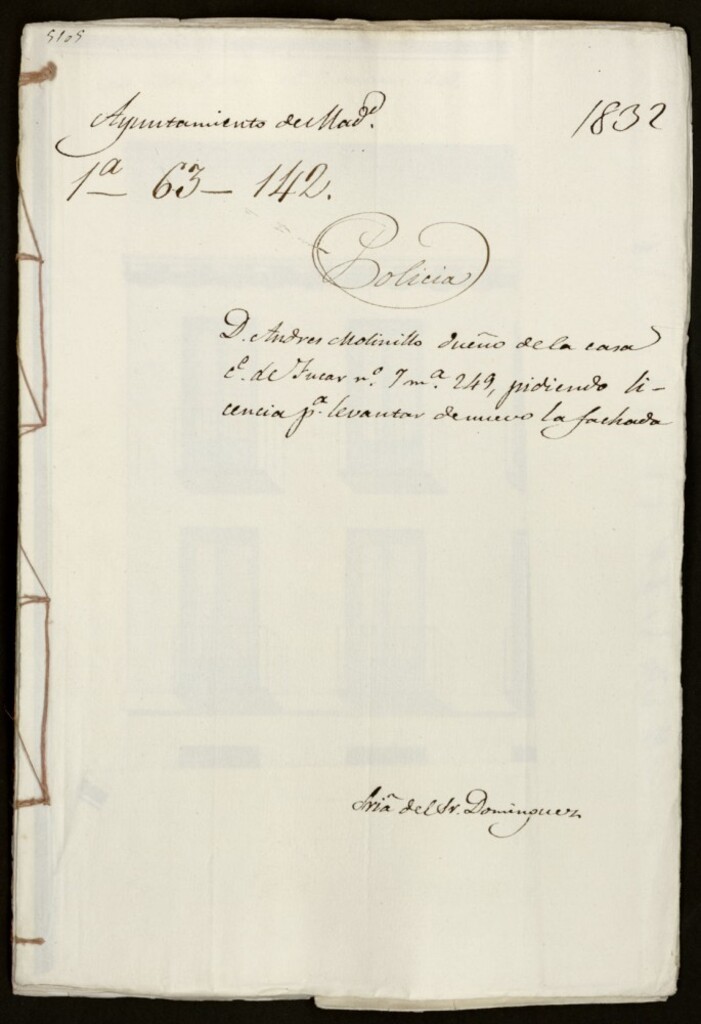 5105
Ayuntamiento de Madᵈ.
1832
1ª 63-142.
Policia
D. Andres Molinillo dueño de la casa
cᵉ. de Fucar nº. 7 mª. 249, pidiendo li-
cencia pª. levantar de nuevo la fachada
Sriaª del Sr. Dominguez